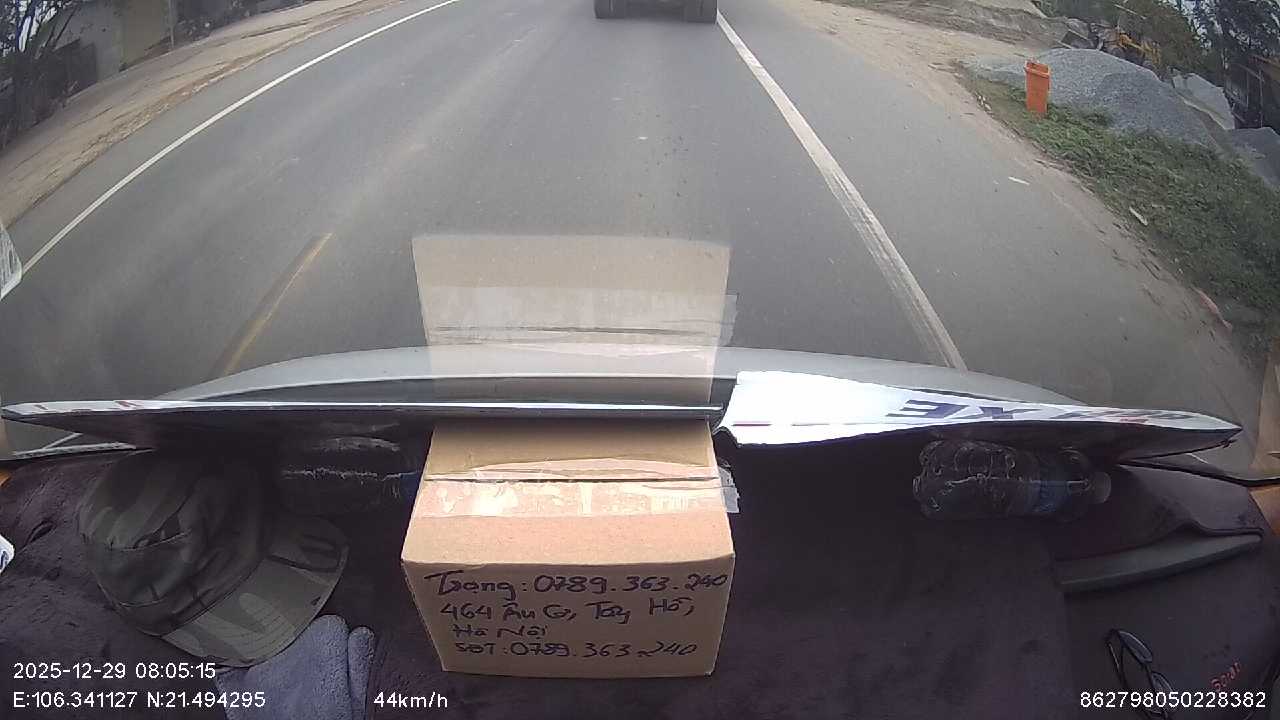 Trọng: 0789.363.240
464 Âu Cơ, Tây Hồ,
Hà Nội
SĐT: 0789.363.240
2025-12-29 08:05:15
E:106.341127 N:21.494295 44km/h 862798050228382